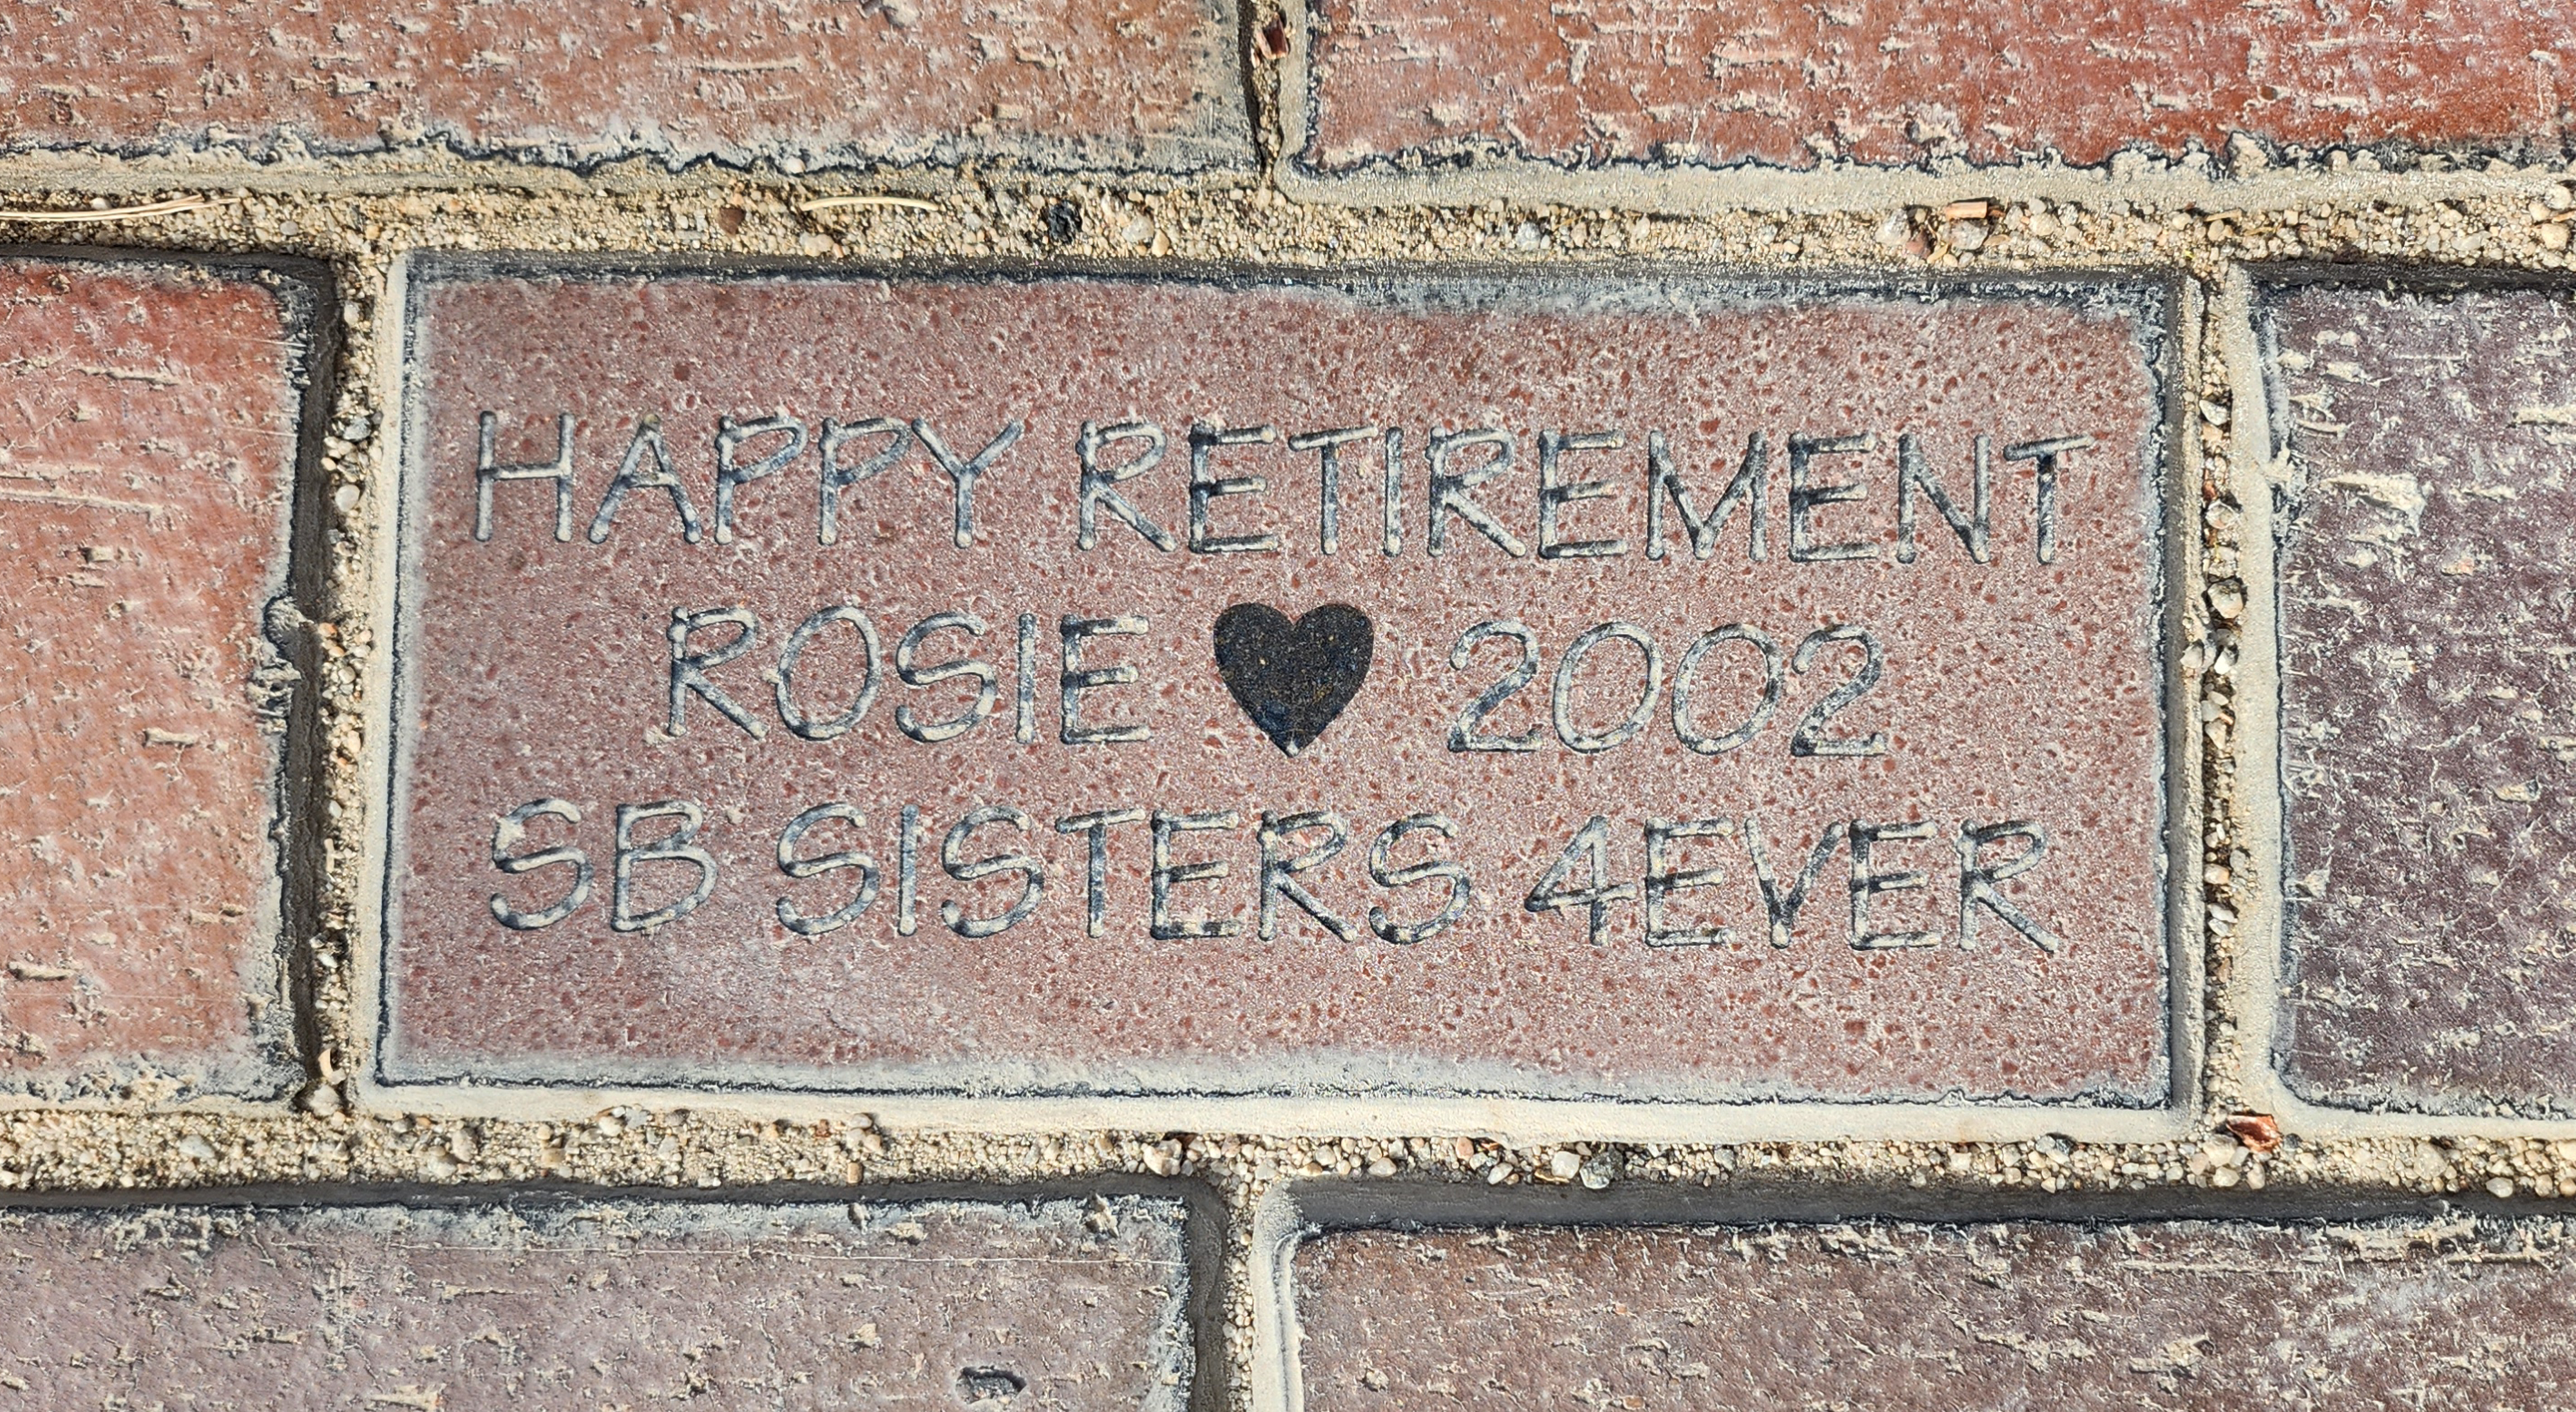 HAPPY RETIREMENT
ROSIE ♥ 2002
SB SISTERS 4EVER